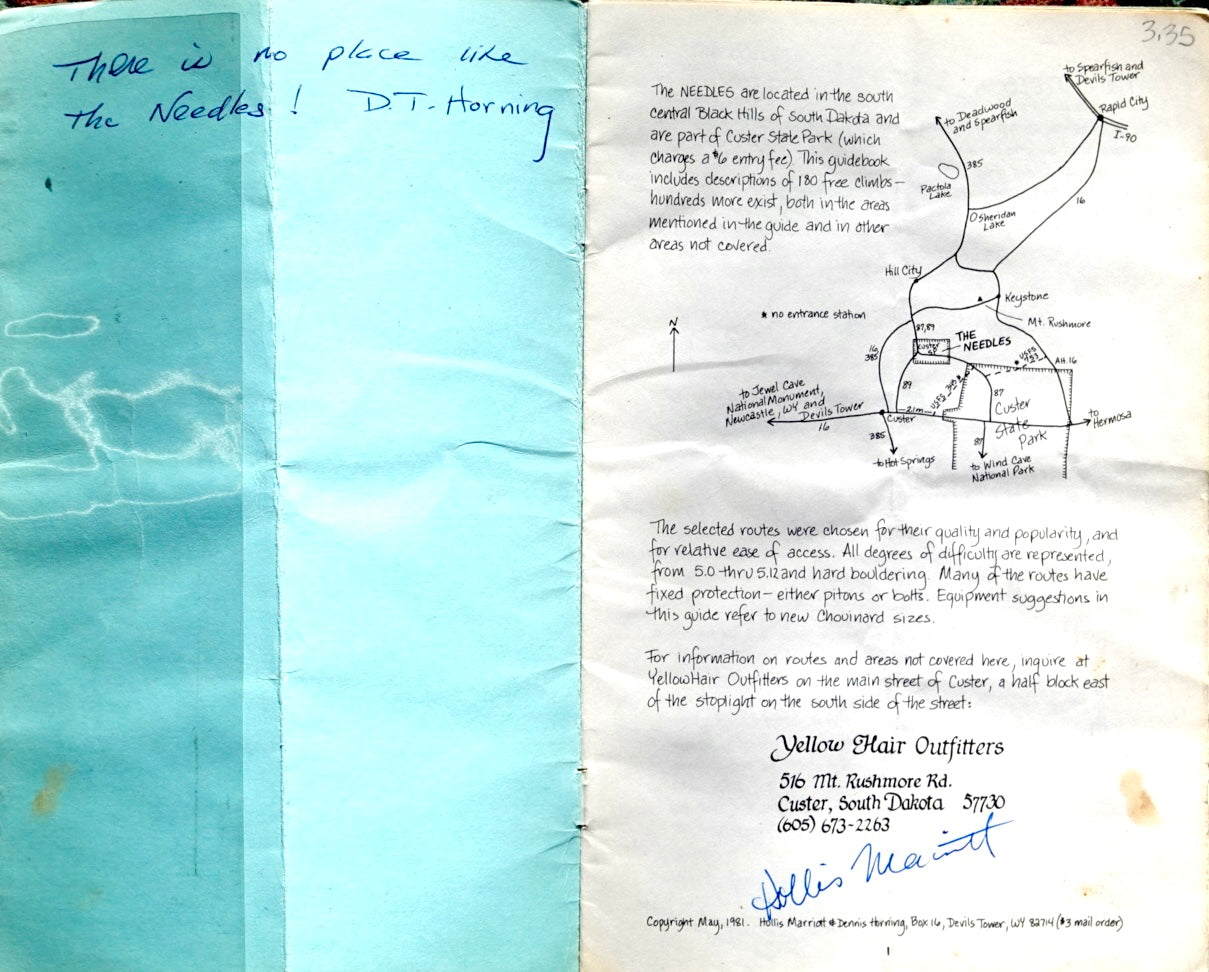 There is no place like
the Needles! D.T. Horning
3.35
The NEEDLES are located in the south
central Black Hills of South Dakota and
are part of Custer State Park (which
charges a $6 entry fee). This guidebook
includes descriptions of 180 free climbs—
hundreds more exist, both in the areas
mentioned in the guide and in other
areas not covered.
to Spearfish and
Devils Tower
Rapid City
I-90
to Deadwood
and Spearfish
385
Pactola
Lake
16
Sheridan
Lake
Hill City
Keystone
* no entrance station
Mt. Rushmore
N
87,89
THE
NEEDLES
Custer
SP
16,
385
USFS
753
AH.16
to Jewel Cave
National Monument,
Newcastle, WY and
Devils Tower
89
USFS
87
Custer
State
Park
2.1m
Custer
to
Hermosa
16
385
87
to Hot Springs
to Wind Cave
National Park
The selected routes were chosen for their quality and popularity, and
for relative ease of access. All degrees of difficulty are represented,
from 5.0 thru 5.12 and hard bouldering. Many of the routes have
fixed protection — either pitons or bolts. Equipment suggestions in
this guide refer to new Chouinard sizes.
For information on routes and areas not covered here, inquire at
Yellow Hair Outfitters on the main street of Custer, a half block east
of the stoplight on the south side of the street:
Yellow Hair Outfitters
516 Mt. Rushmore Rd.
Custer, South Dakota 57730
(605) 673-2263
Hollis Marriott
Copyright May, 1981. Hollis Marriott & Dennis Horning, Box 16, Devils Tower, WY 82714 ($3 mail order)
1